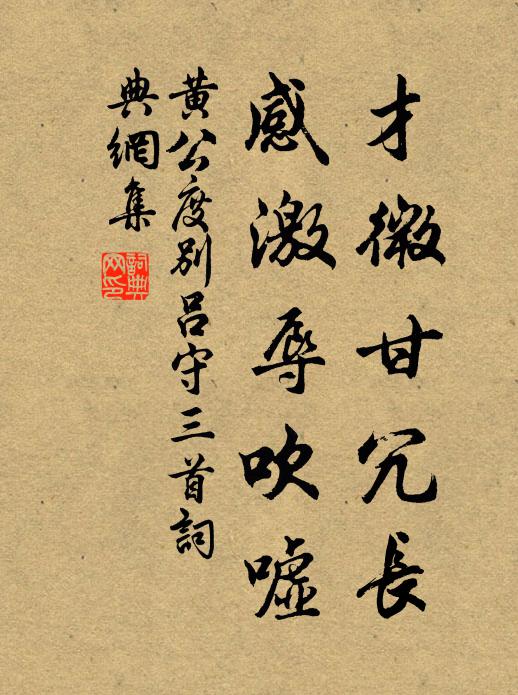 才微甘冗長
感激辱吹噓
黃公度別呂守三首詞
典網集
詞典網印